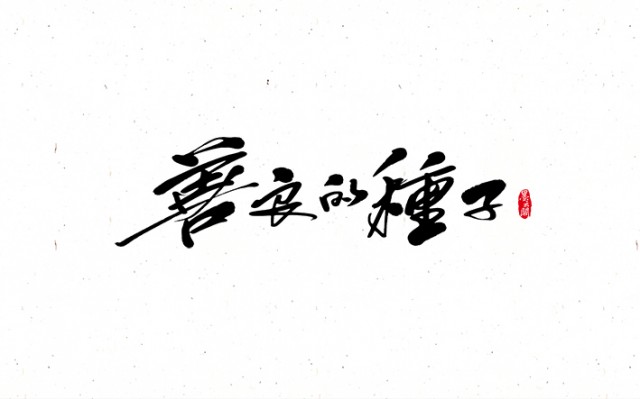 善良的種子